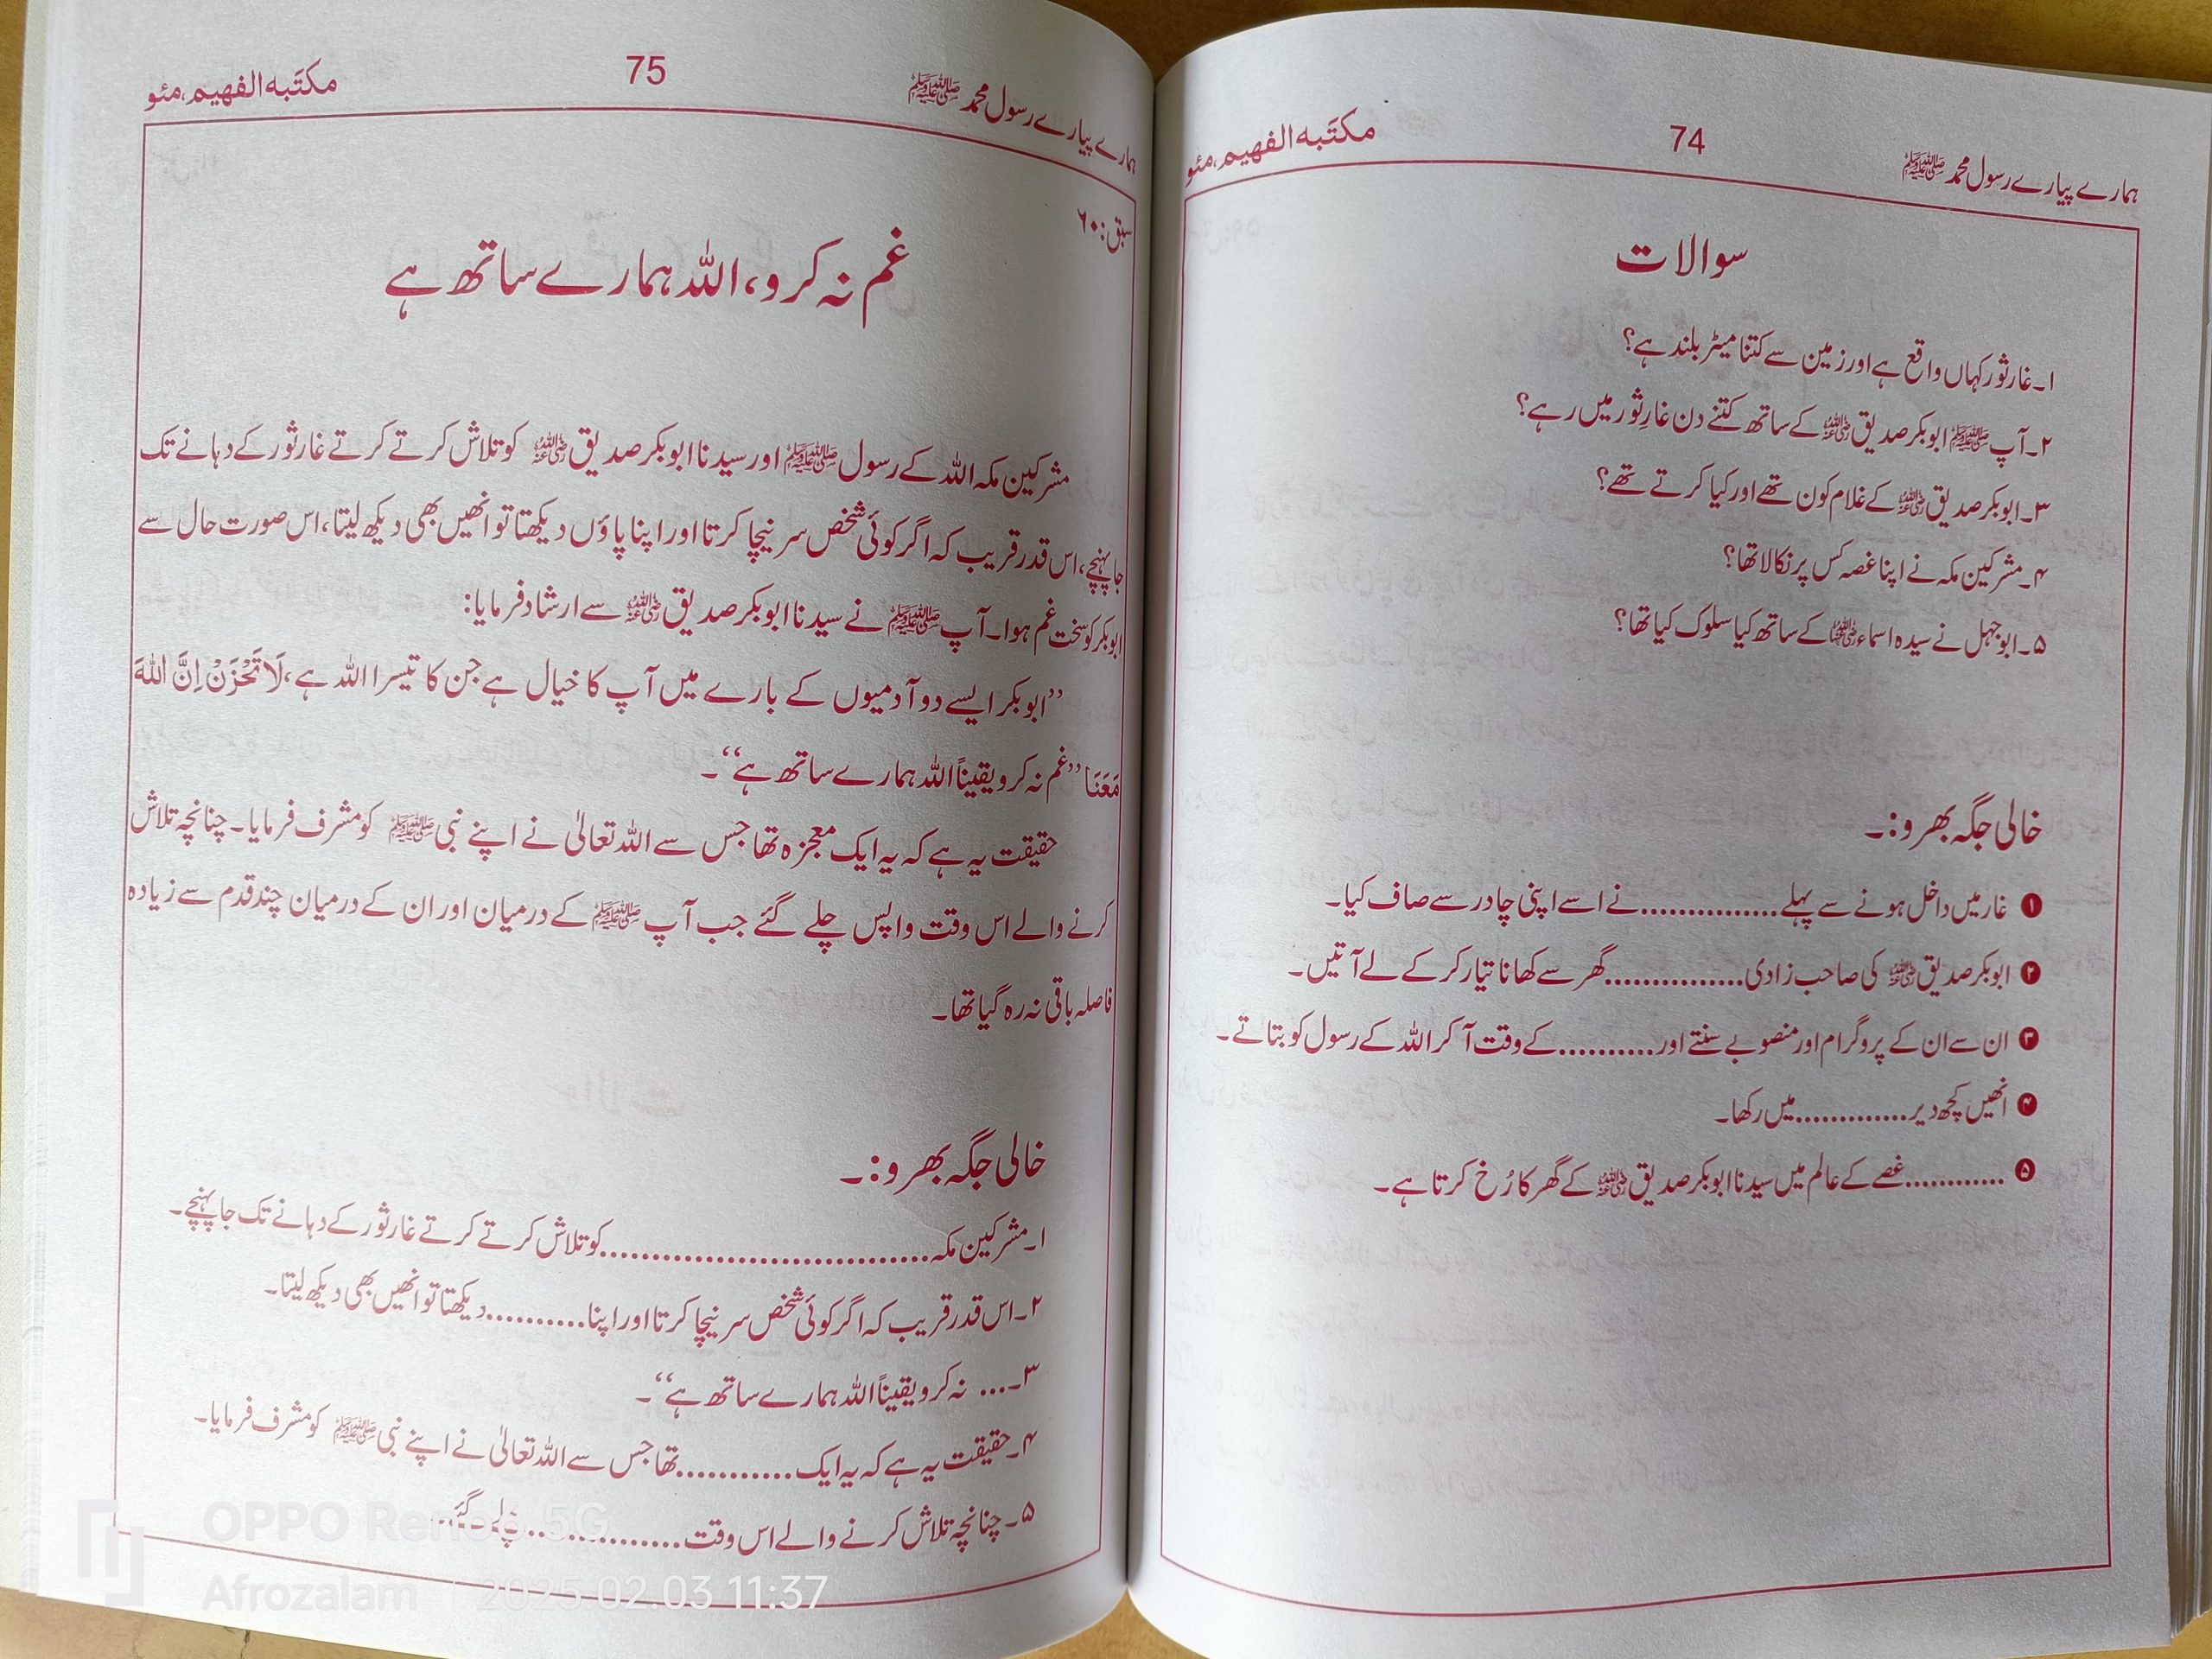 ہمارے پیارے رسول محمد ﷺ 74 مکتبہ الفہیم، مئو
سوالات
۱۔غار ثور کہاں واقع ہے اور زمین سے کتنا میٹر بلند ہے؟
۲۔آپ ﷺ ابوبکر صدیق رضی اللہ عنہ کے ساتھ کتنے دن غارِ ثور میں رہے؟
۳۔ابوبکر صدیق رضی اللہ عنہ کے غلام کون تھے اور کیا کرتے تھے؟
۴۔مشرکین مکہ نے اپنا غصہ کس پر نکالا تھا؟
۵۔ابوجہل نے سیدہ اسماء رضی اللہ عنہا کے ساتھ کیا سلوک کیا تھا؟
خالی جگہ بھرو:۔
❶ غار میں داخل ہونے سے پہلے...............نے اسے اپنی چادر سے صاف کیا۔
❷ ابوبکر صدیق رضی اللہ عنہ کی صاحب زادی...............گھر سے کھانا تیار کر کے لے آتیں۔
❸ ان سے ان کے پروگرام اور منصوبے سنتے اور...........کے وقت آ کر اللہ کے رسول کو بتاتے۔
❹ انھیں کچھ دیر.............میں رکھا۔
❺ ............غصے کے عالم میں سیدنا ابوبکر صدیق رضی اللہ عنہ کے گھر کا رُخ کرتا ہے۔
ہمارے پیارے رسول محمد ﷺ 75 مکتبہ الفہیم، مئو
سبق:۶۰
غم نہ کرو، اللہ ہمارے ساتھ ہے
مشرکین مکہ اللہ کے رسول ﷺ اور سیدنا ابوبکر صدیق رضی اللہ عنہ کو تلاش کرتے کرتے غار ثور کے دہانے تک
جا پہنچے، اس قدر قریب کہ اگر کوئی شخص سر نیچا کرتا اور اپنا پاؤں دیکھتا تو انھیں بھی دیکھ لیتا، اس صورت حال سے
ابوبکر کو سخت غم ہوا۔ آپ ﷺ نے سیدنا ابوبکر صدیق رضی اللہ عنہ سے ارشاد فرمایا:
’’ابوبکر ایسے دو آدمیوں کے بارے میں آپ کا خیال ہے جن کا تیسرا اللہ ہے، لَا تَحْزَنْ اِنَّ اللّٰہَ
مَعَنَا ’’غم نہ کرو یقیناً اللہ ہمارے ساتھ ہے‘‘۔
حقیقت یہ ہے کہ یہ ایک معجزہ تھا جس سے اللہ تعالیٰ نے اپنے نبی ﷺ کو مشرف فرمایا۔ چنانچہ تلاش
کرنے والے اس وقت واپس چلے گئے جب آپ ﷺ کے درمیان اور ان کے درمیان چند قدم سے زیادہ
فاصلہ باقی نہ رہ گیا تھا۔
خالی جگہ بھرو:۔
۱۔مشرکین مکہ................................کو تلاش کرتے کرتے غار ثور کے دہانے تک جا پہنچے۔
۲۔اس قدر قریب کہ اگر کوئی شخص سر نیچا کرتا اور اپنا..........دیکھتا تو انھیں بھی دیکھ لیتا۔
۳۔... نہ کرو یقیناً اللہ ہمارے ساتھ ہے‘‘۔
۴۔حقیقت یہ ہے کہ یہ ایک............تھا جس سے اللہ تعالیٰ نے اپنے نبی ﷺ کو مشرف فرمایا۔
۵۔چنانچہ تلاش کرنے والے اس وقت...............چلے گئے...
OPPO Reno 5G
Afrozalam | 2025.02.03 11:37